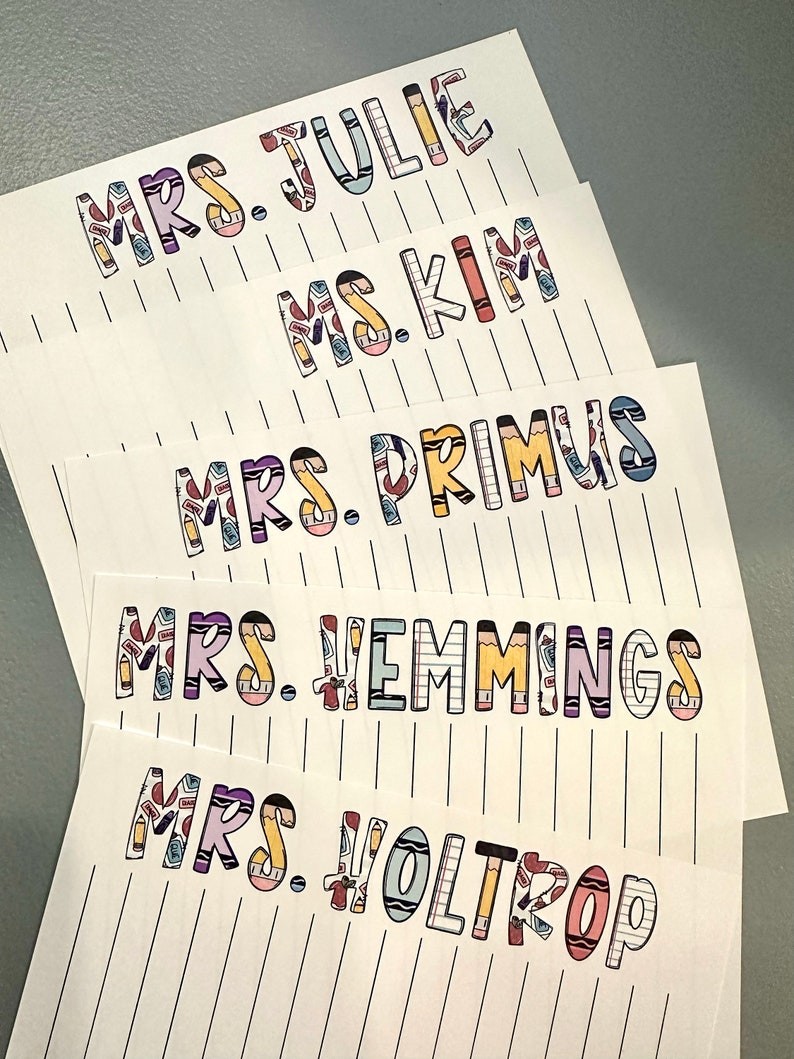 MRS. JULIE
MS. KIM
MRS. PRIMUS
MRS. HEMMINGS
MRS. HOLTROP